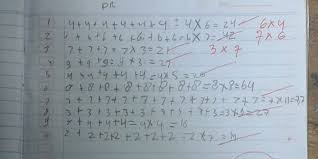 DR
4+4+4+4+4+4 = 4X6=24 6X4
6+6+6+6+6+6+6=6X7=42 7X6
7+7+7=7X3=21 3X7
9+9+9=9X3=27
4+4+4+4+4=4X5=20
8+8+8+8+8+8+8+8=8X8=64
7+7+7+7+7+7+7+7+7+7+7=7X11=77
3+3+3+3+3+3+3+3+3=3X9=27
4+4+4+4=4X4=16
2+2+2+2+2+2+2=2X7=14